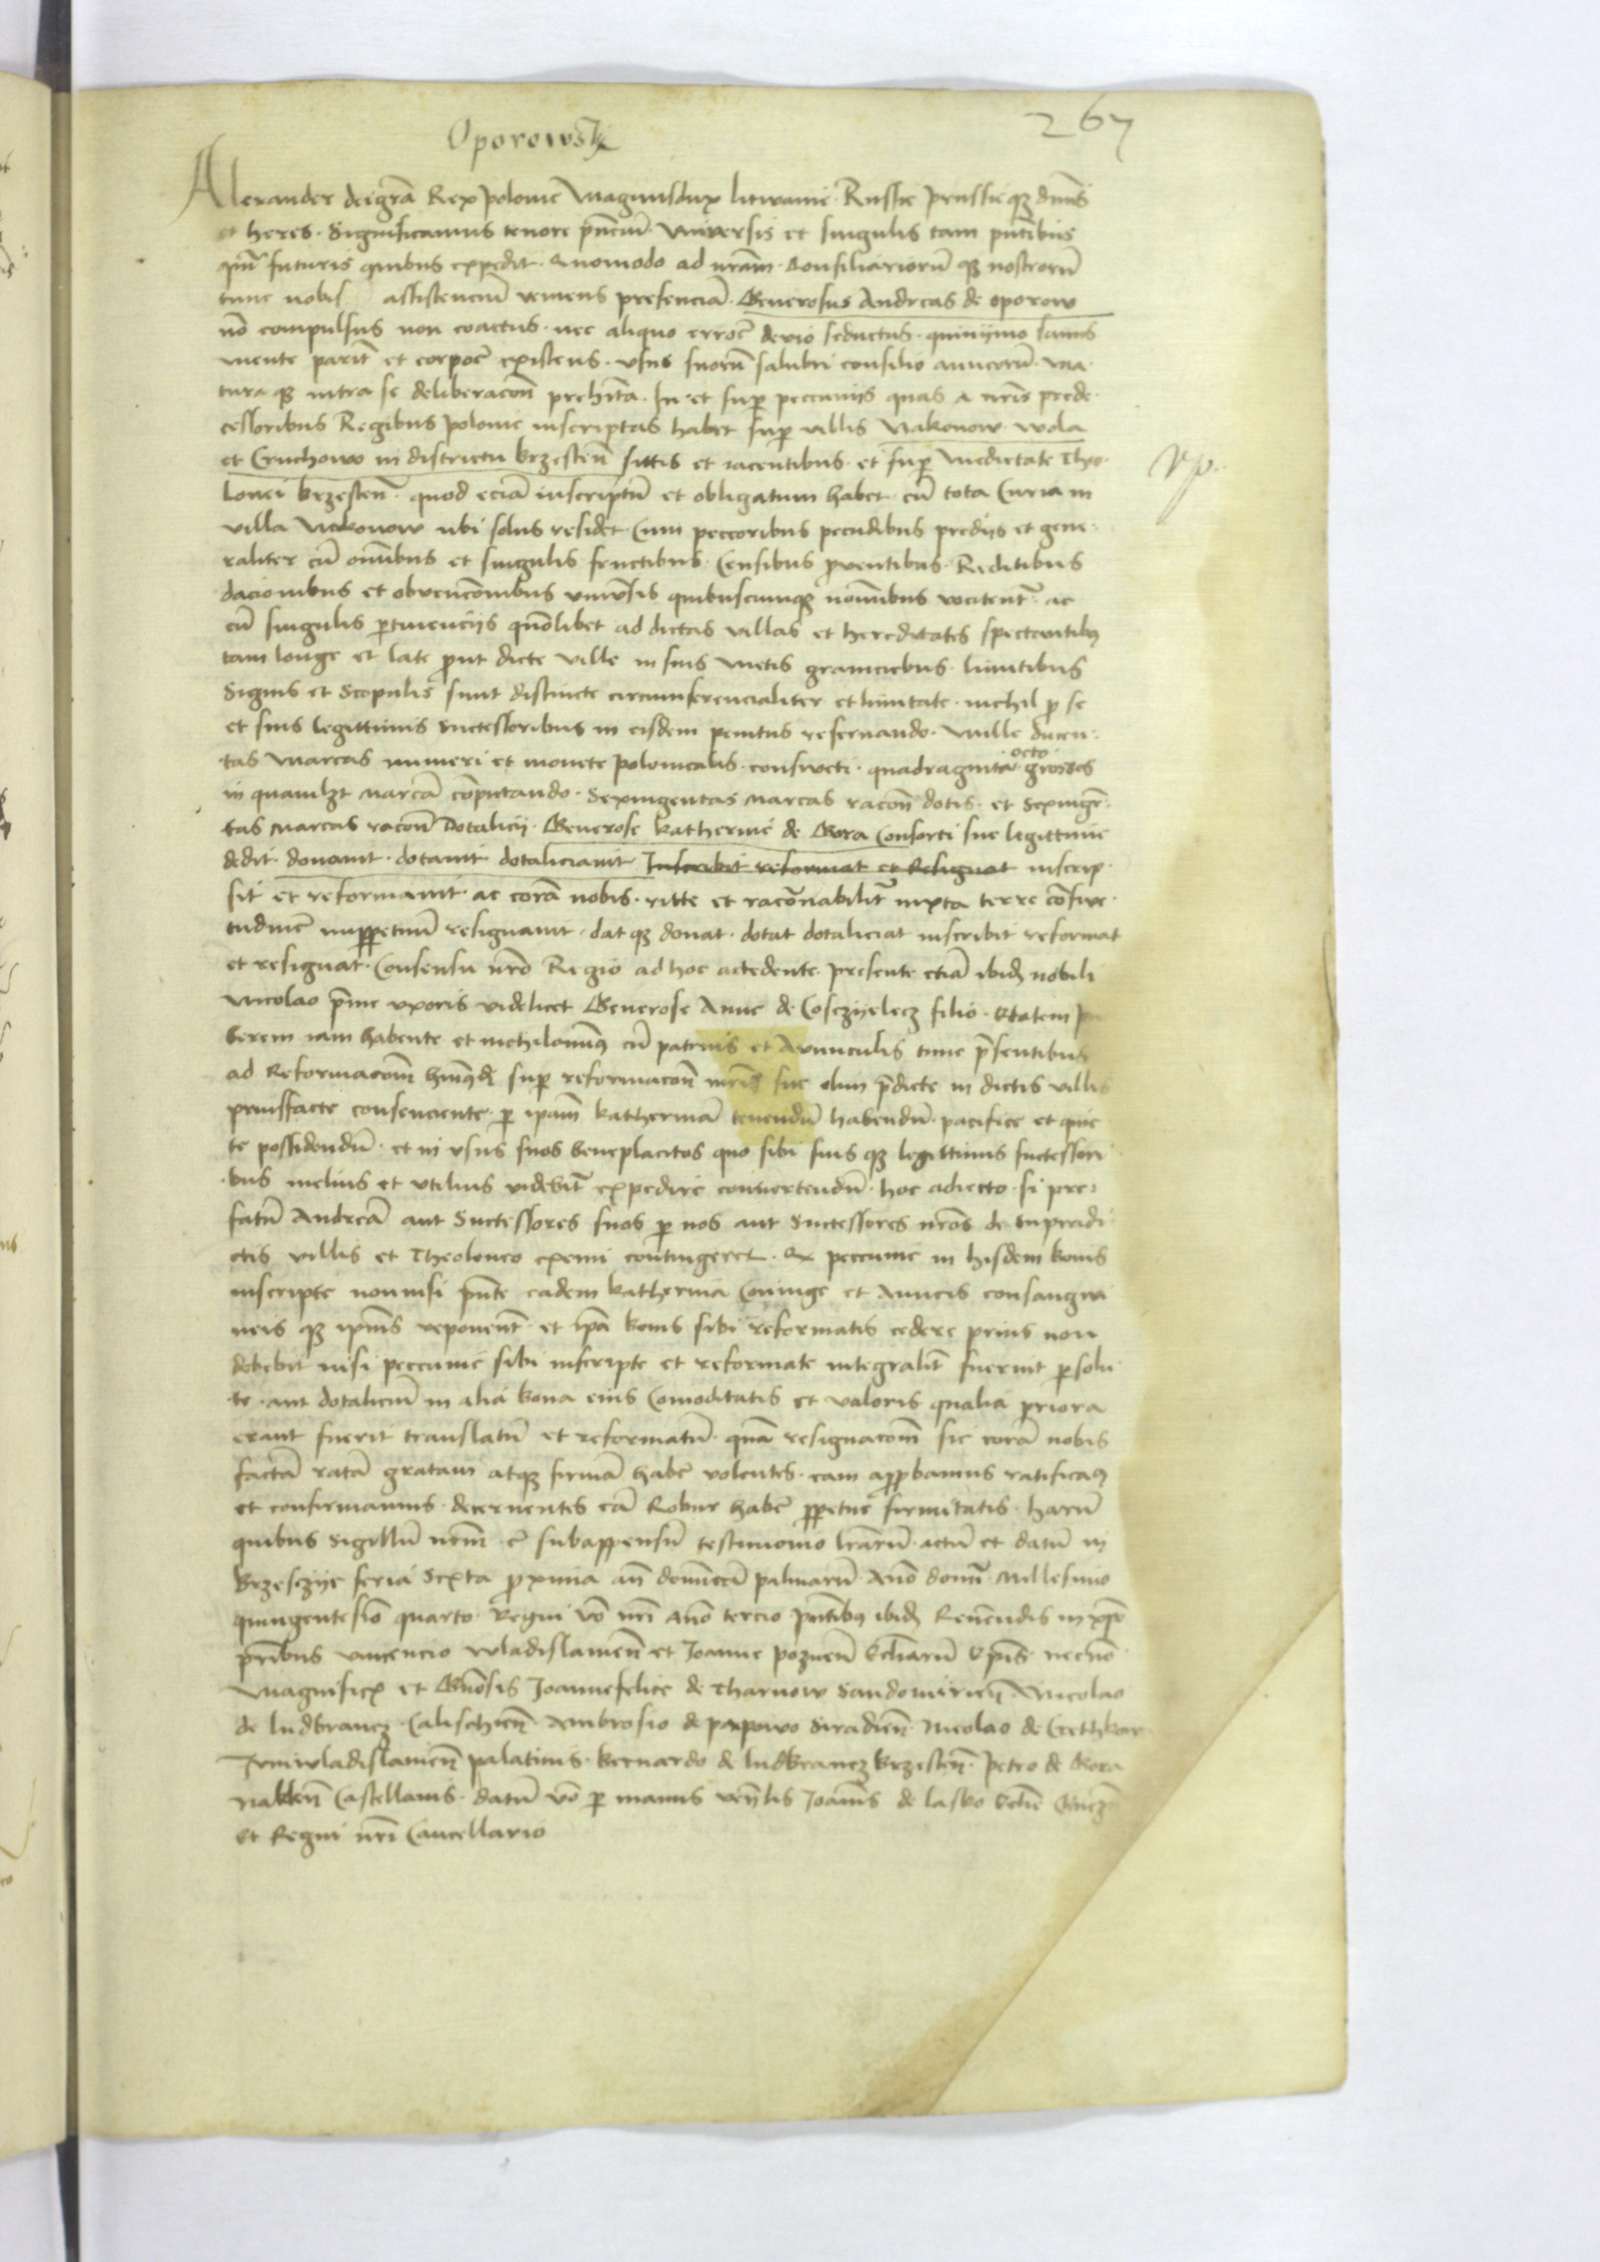 267
Oporowski
Alexander dei grã Rex polonie Magnusdux litwanie Russie prussieqz dnus
et heres. Significamus tenore pñcium. Universis et singulis tam pñtibus
qm futuris quibus expedit. Quomodo ad nram Consiliariorũ qz nostrorũ
tunc nobis assistenciũ veniens presenciã. Generosus Andreas de oporow
nõ compulsus non coactus. nec aliquo errore devio seductus. quinymo sanus
mente parit et corpore existens. usus suorũ salubri consilio amicorũ. ma
tura qz intra se deliberacõn prehita. In et sup peccunijs quas a nris prede
cessoribus Regibus polonie inscriptas habet sup villis Nakonow wola
et Cruchowo in districtu brzesteñ sittis et iacentibus. et sup medietate Theo
lonei brzesteñ. quod eciã inscriptũ et obligatum habet. cũ tota Curia in
villa Nakonow ubi solus residet Cum peccoribus pecudibus predijs et gene
raliter cũ omnibus et singulis fructibus. Censibus proventibus. Redditibus
dacionibus et obvencõnibus univsis quibuscumqz nominibus vocitent ac
cũ singulis ptinencijs quolibet ad dictas villas et hereditates spectantibus
tam longe et late put dicte ville in suis metis graniciebus limitibus
Signis et Scopulis sunt distincte circumferencialiter et limitate. nichil p se
et suis legittimis successoribus in eisdem penitus reservando. Mille ducen
tas marcas numeri et monete polonicalis consweti. quadraginta octo grossos
in quamlzt marcã computando. Sexingentas marcas racõn dotis. et Sexingē
tas marcas racõn Dotalicij. Generose katherine de Gora Consorti sue legittime
dedit. donavit. dotavit dotaliciavit Inscribit reformat et Resignat inscrip
sit et reformavit ac corã nobis. ritte et racõnabilit iuxta terre cõswe
tudinẽ imppetuũ resignavit. dat qz donat. dotat dotaliciat inscribit reformat
et resignat. Consensu nro Regio ad hoc accedente. presente eciã ibidẽ nobili
Nicolao pme uxoris videlicet Generose Anne de Coszczyelecz filio. Etatem pu
berem iam habente et nichilominus cũ patruis et Avunculis tunc psentibus
ad Reformacõnẽ hmõi sup reformacõn mris sue olim pdicte in dictis villis
priusfacte consenciente. p ipam katherinã tenendũ habendũ pacifice et quie
te possidendũ. et in usus suos beneplacitos quo sibi suis qz legittimis successori
bus melius et utilius videbit expedire convertendũ. hoc adiecto. si pre
fatũ Andreã aut Successores suos p nos aut Successores nros de supradi
ctis villis et Theoloneo exemi contingeret. Ex peccunie in hisdem bonis
inscripte nonnisi pñte eadem katherina Coniuge et Amicis consangwi
neis qz ipius reponent. et ipa bonis sibi reformatis cedere prius non
debebit nisi peccunie sibi inscripte et reformate integralit fuerint psolu
te. aut dotaliciũ in alia bona eius Comoditatis et valoris qualia priora
erant fuerit translatũ et reformatũ. quã resignacõnẽ sic corã nobis
factã ratã gratam atqz firmã habẽ volentes. eam approbamus ratificamus
et confirmamus. decernentes eã Robur habẽ ppetue firmitatis. harũ
quibus Sigillũ nrm ẽ subappensũ testimonio lrarũ. actũ et datũ in
Brzesczye feria Sexta pxima añ dominicã palmarũ Anno domĩ Millesimo
quingentesimo quarto. Regni vo nri anno tercio pñtibus ibidẽ Revendis in xpo
pribus Vincencio wladislavieñ et Joanne poznaneñ Ecclesiarũ Epis. necnõ
Magnificis et Gñosis Joannefelice de Tharnow Sandomirieñ Nicolao
de ludbrancz Calischieñ. Ambrosio de pampowo Siradieñ. Nicolao de
Juniwladislavieñ palatinis. Bernardo de ludbrancz brzesteñ. petro de Gora
nakleñ Castellanis. datũ vo p manus veñlis Joannis de lasko Ecclie
et Regni nri Cancellario